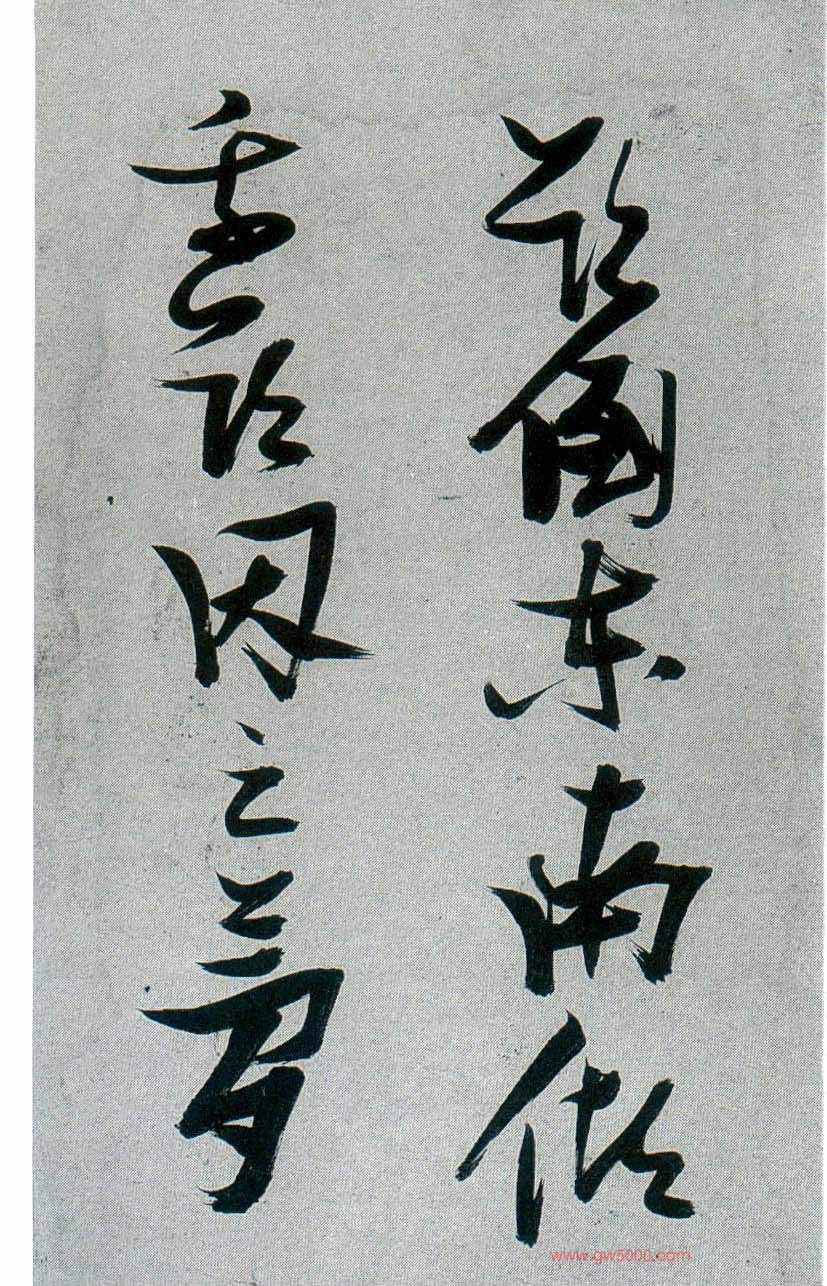 欲倒東南傾
我欲因之夢
www.gw5000.com